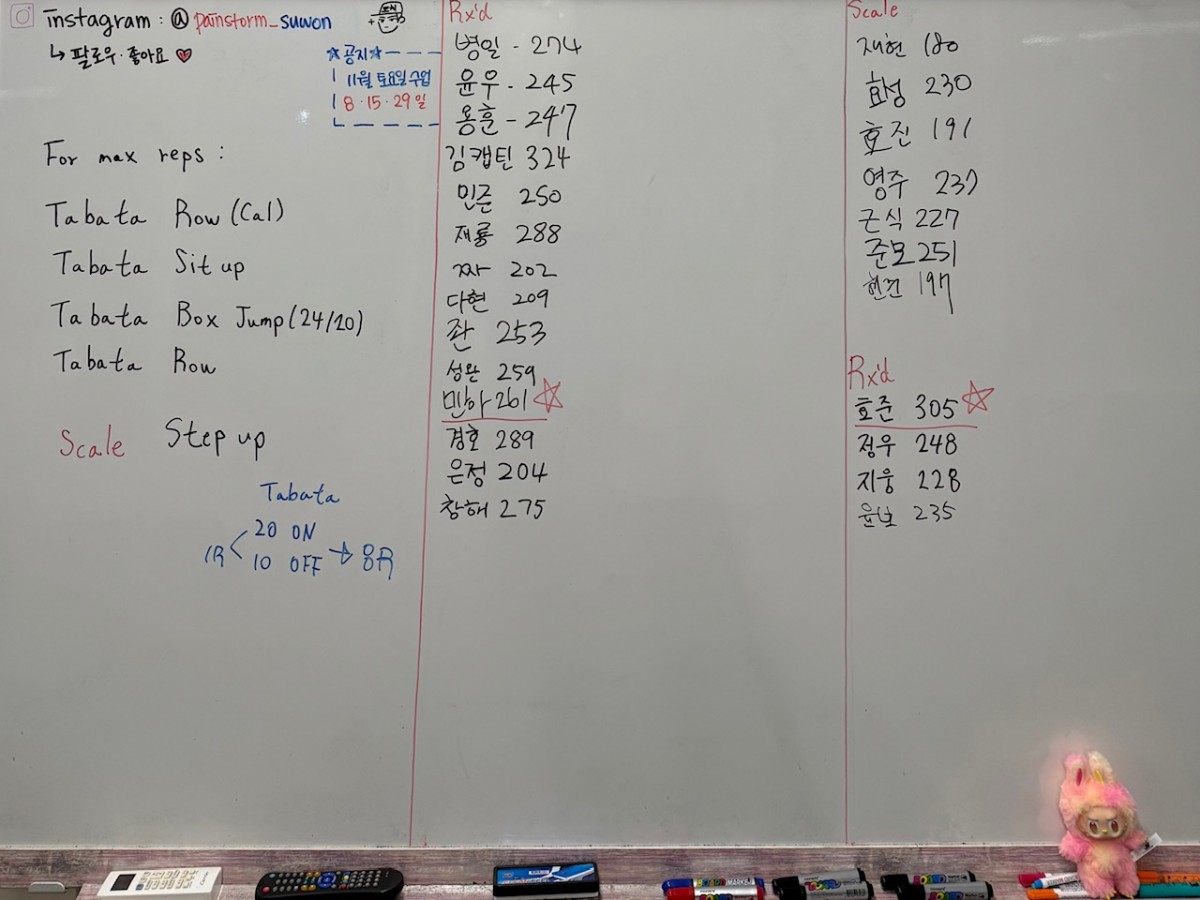 instagram : @ painstorm_suwon
↳ 팔로우·좋아요 ♥
☆공지☆
11월 토요일 수업
8 · 15 · 29 일
For max reps :
Tabata Row (Cal)
Tabata Sit up
Tabata Box Jump (24/20)
Tabata Row
Scale Step up
Tabata
1R < 20 ON
10 OFF → 8R
Rx'd
병일 - 274
윤우 - 245
용훈 - 247
김캡틴 324
민준 250
재룡 288
짜 202
다현 209
좐 253
성완 259
민하 261 ☆
경호 289
은정 204
창해 275
Scale
재현 180
효성 230
효진 191
영주 237
근식 227
준모 251
현건 197
Rx'd
효준 305 ☆
정우 248
지웅 228
235